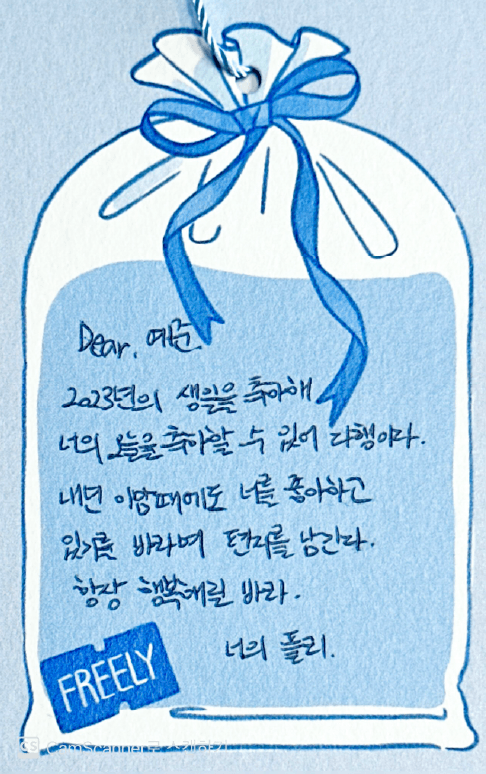 Dear. 예준.
2023년의 생일을 축하해
너의 오늘을 축하할 수 있어 다행이다.
내년 이맘때에도 너를 좋아하고
있기를 바라며 편지를 남긴다.
항상 행복해질 바라.
너의 플리.
FREELY
CS CamScanner로 스캔하기